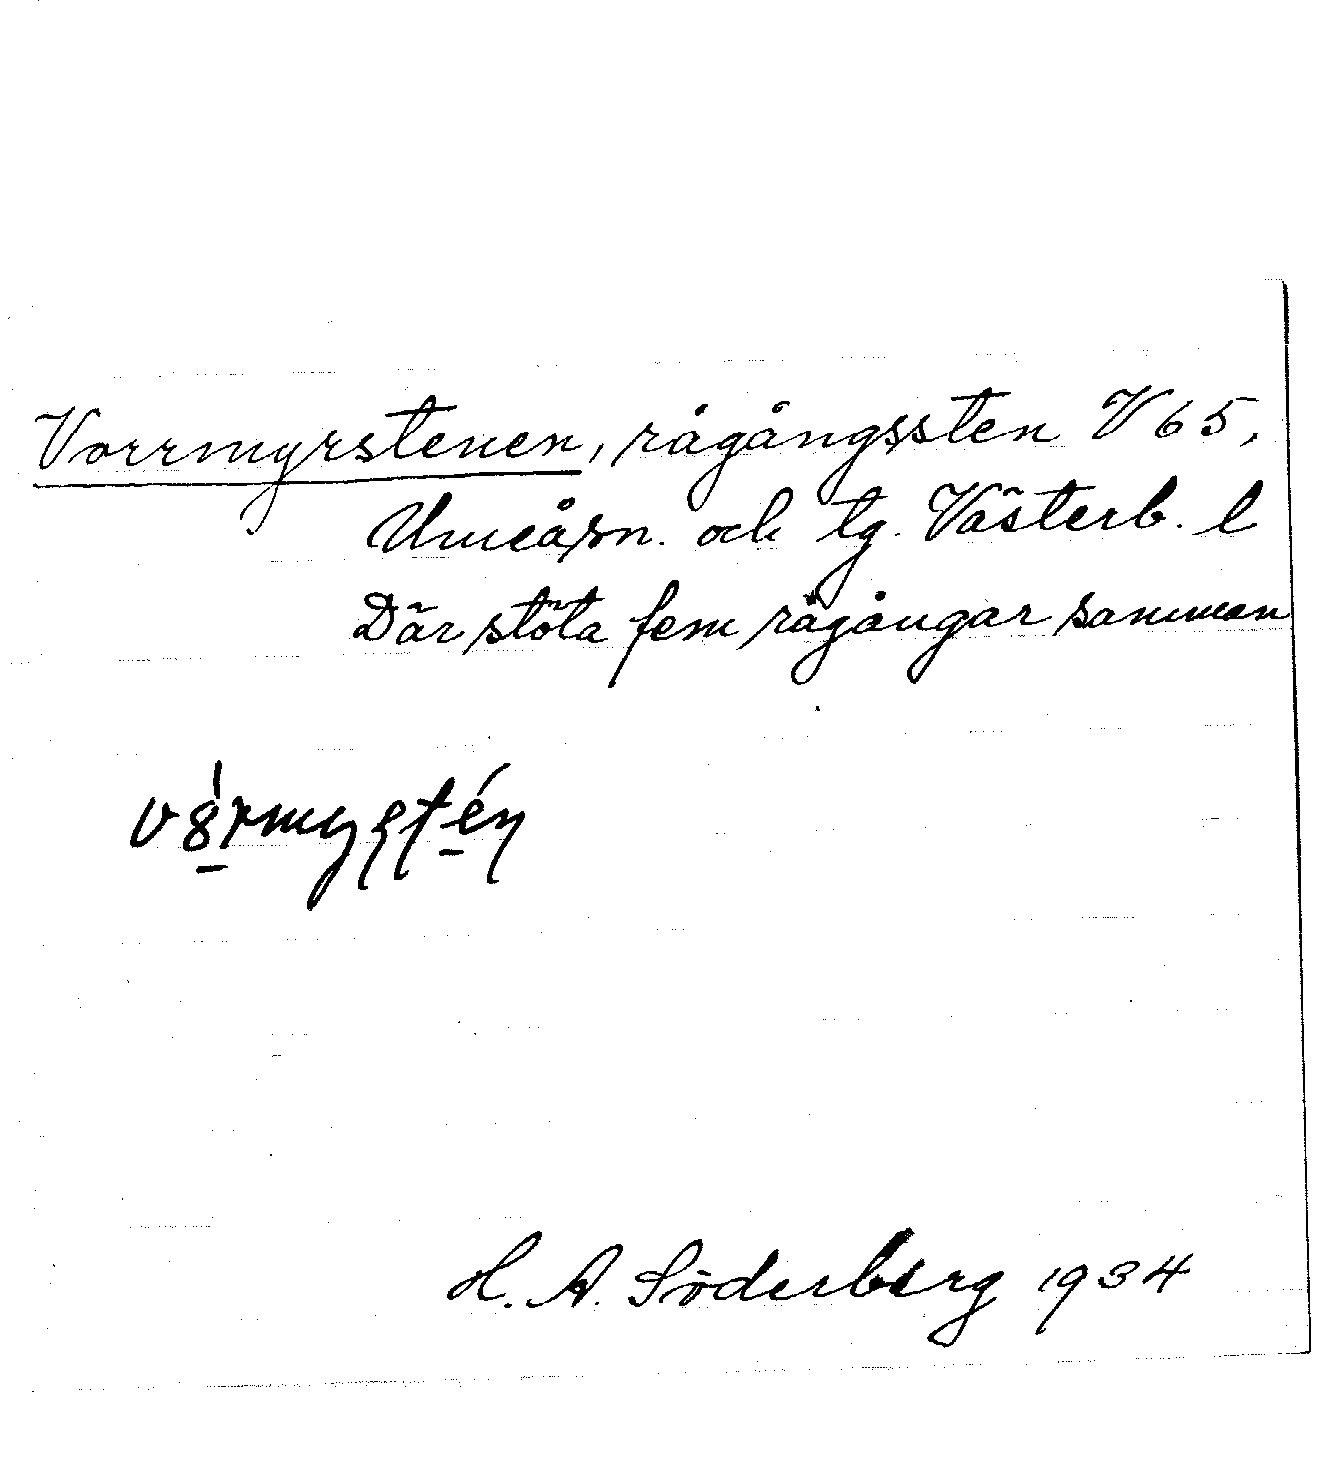 Vorrmyrstenen, rågångssten V 65,
Umeå sn. och tg. Västerb. l
Där stöta fem rågångar samman
H. A. Söderberg 1934